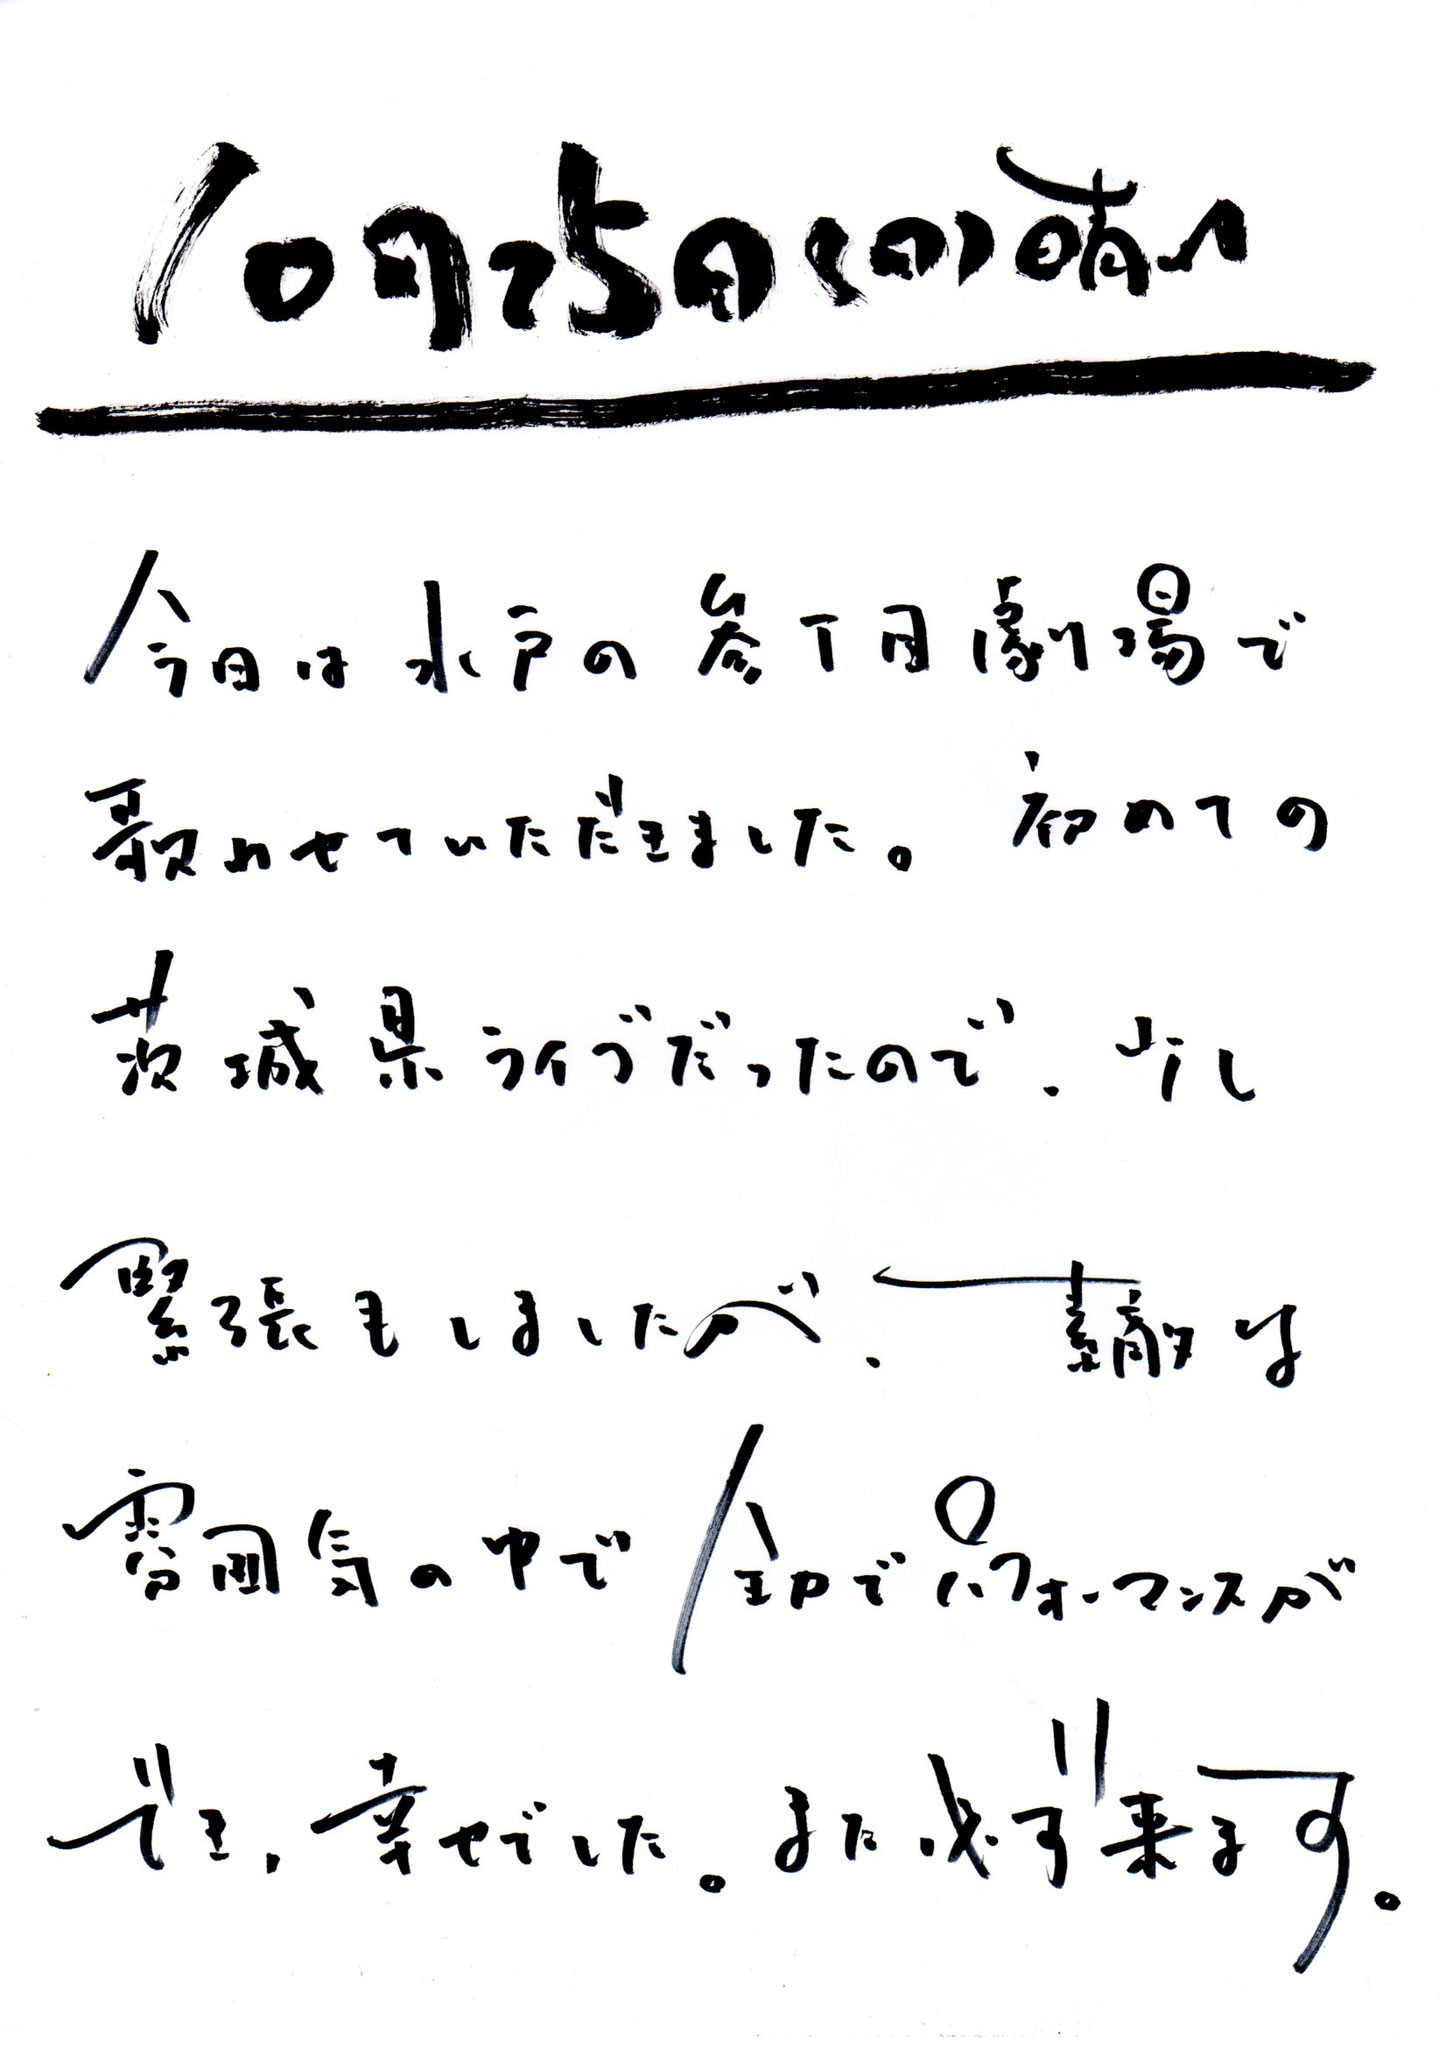 10月25日(日)晴れ
今日は水戸の参丁目劇場で
歌わせていただきました。初めての
茨城県ライブだったので、少し
緊張もしましたが、素敵な
雰囲気の中で全力でパフォーマンスが
でき、幸せでした。また必ず来ます。